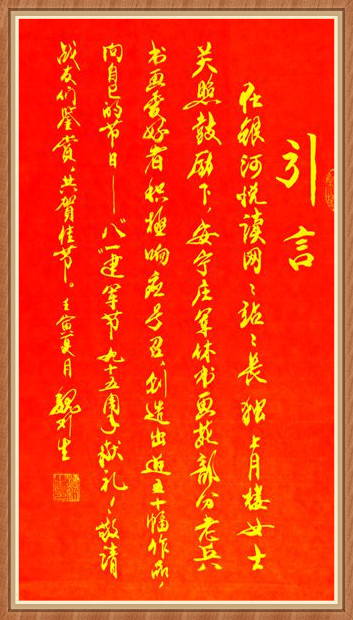 引言
在银河悦读网々站々长独上月楼女士
关照鼓励下，安宁庄军休书画苑部分老兵
书画爱好者积极响应号召，创造出近五十幅作品，
向自己的节日——“八一”建军节九十五周年献礼，敬请
战友们鉴赏，共賀佳节。壬寅夏月 魏 生